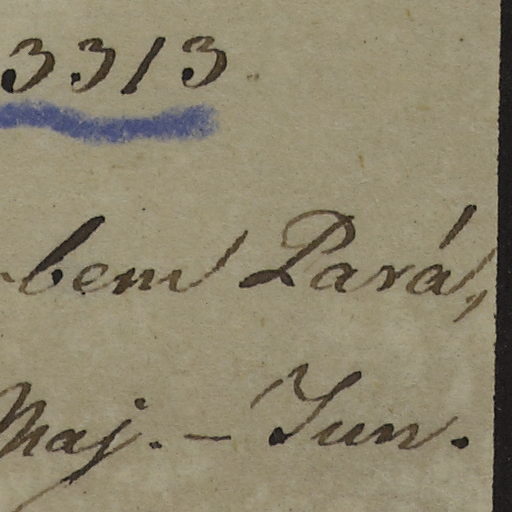 3313
bem Pará,
Maj. – Jun.